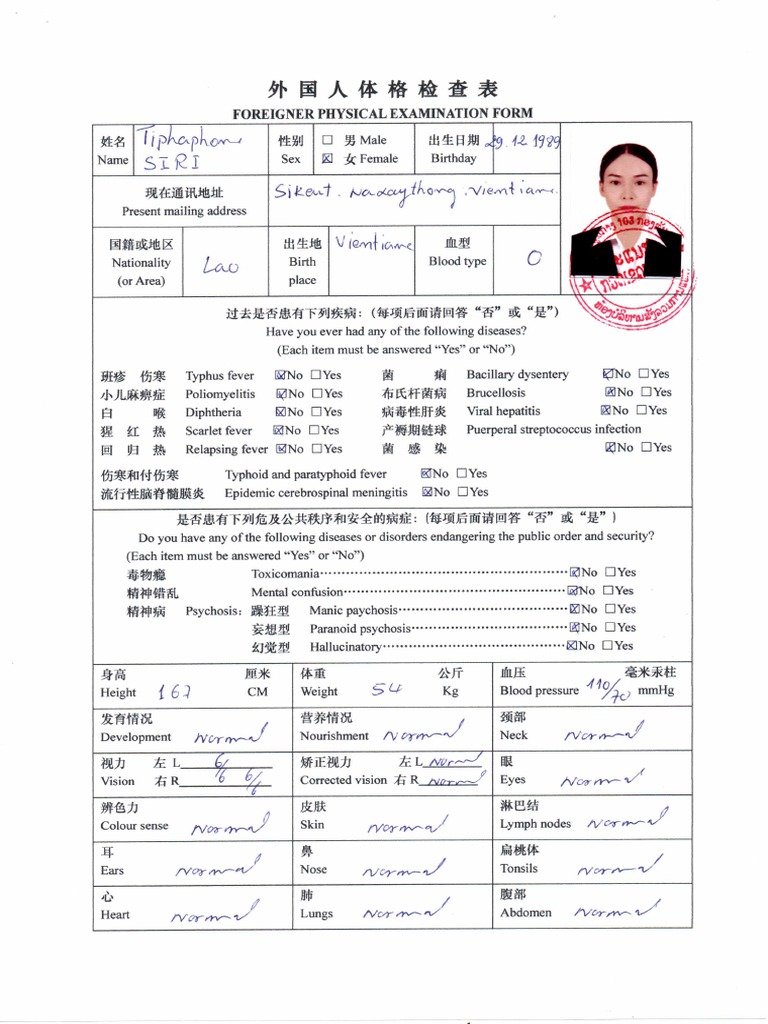 外国人体格检查表
FOREIGNER PHYSICAL EXAMINATION FORM
姓名 Tiphaphone 性别 ☐ 男 Male 出生日期 29.12.1989
Name SIRI Sex ☒ 女 Female Birthday
现在通讯地址 Sikeut. Naxaythong. Vientiane.
Present mailing address
国籍或地区 出生地 Vientiane 血型
Nationality Lao Birth Blood type O
(or Area) place
过去是否患有下列疾病:(每项后面请回答“否”或“是”)
Have you ever had any of the following diseases?
(Each item must be answered “Yes” or “No”)
班疹 伤寒 Typhus fever ☒No ☐Yes 菌 痢 Bacillary dysentery ☒No ☐Yes
小儿麻痹症 Poliomyelitis ☒No ☐Yes 布氏杆菌病 Brucellosis ☒No ☐Yes
白 喉 Diphtheria ☒No ☐Yes 病毒性肝炎 Viral hepatitis ☒No ☐Yes
猩 红 热 Scarlet fever ☒No ☐Yes 产褥期链球 Puerperal streptococcus infection
回 归 热 Relapsing fever ☒No ☐Yes 菌 感 染 ☒No ☐Yes
伤寒和付伤寒 Typhoid and paratyphoid fever ☒No ☐Yes
流行性脑脊髓膜炎 Epidemic cerebrospinal meningitis ☒No ☐Yes
是否患有下列危及公共秩序和安全的病症:(每项后面请回答“否”或“是”)
Do you have any of the following diseases or disorders endangering the public order and security?
(Each item must be answered “Yes” or “No”)
毒物瘾 Toxicomania ☒No ☐Yes
精神错乱 Mental confusion ☒No ☐Yes
精神病 Psychosis: 躁狂型 Manic paychosis ☒No ☐Yes
妄想型 Paranoid psychosis ☒No ☐Yes
幻觉型 Hallucinatory ☒No ☐Yes
身高 厘米 体重 公斤 血压 毫米汞柱
Height 167 CM Weight 54 Kg Blood pressure 110/70 mmHg
发育情况 营养情况 颈部
Development Normal Nourishment Normal Neck Normal
视力 左 L 6/6 矫正视力 左 L Normal 眼
Vision 右 R 6/6 Corrected vision 右 R Normal Eyes Normal
辨色力 皮肤 淋巴结
Colour sense Normal Skin Normal Lymph nodes Normal
耳 鼻 扁桃体
Ears Normal Nose Normal Tonsils Normal
心 肺 腹部
Heart Normal Lungs Normal Abdomen Normal